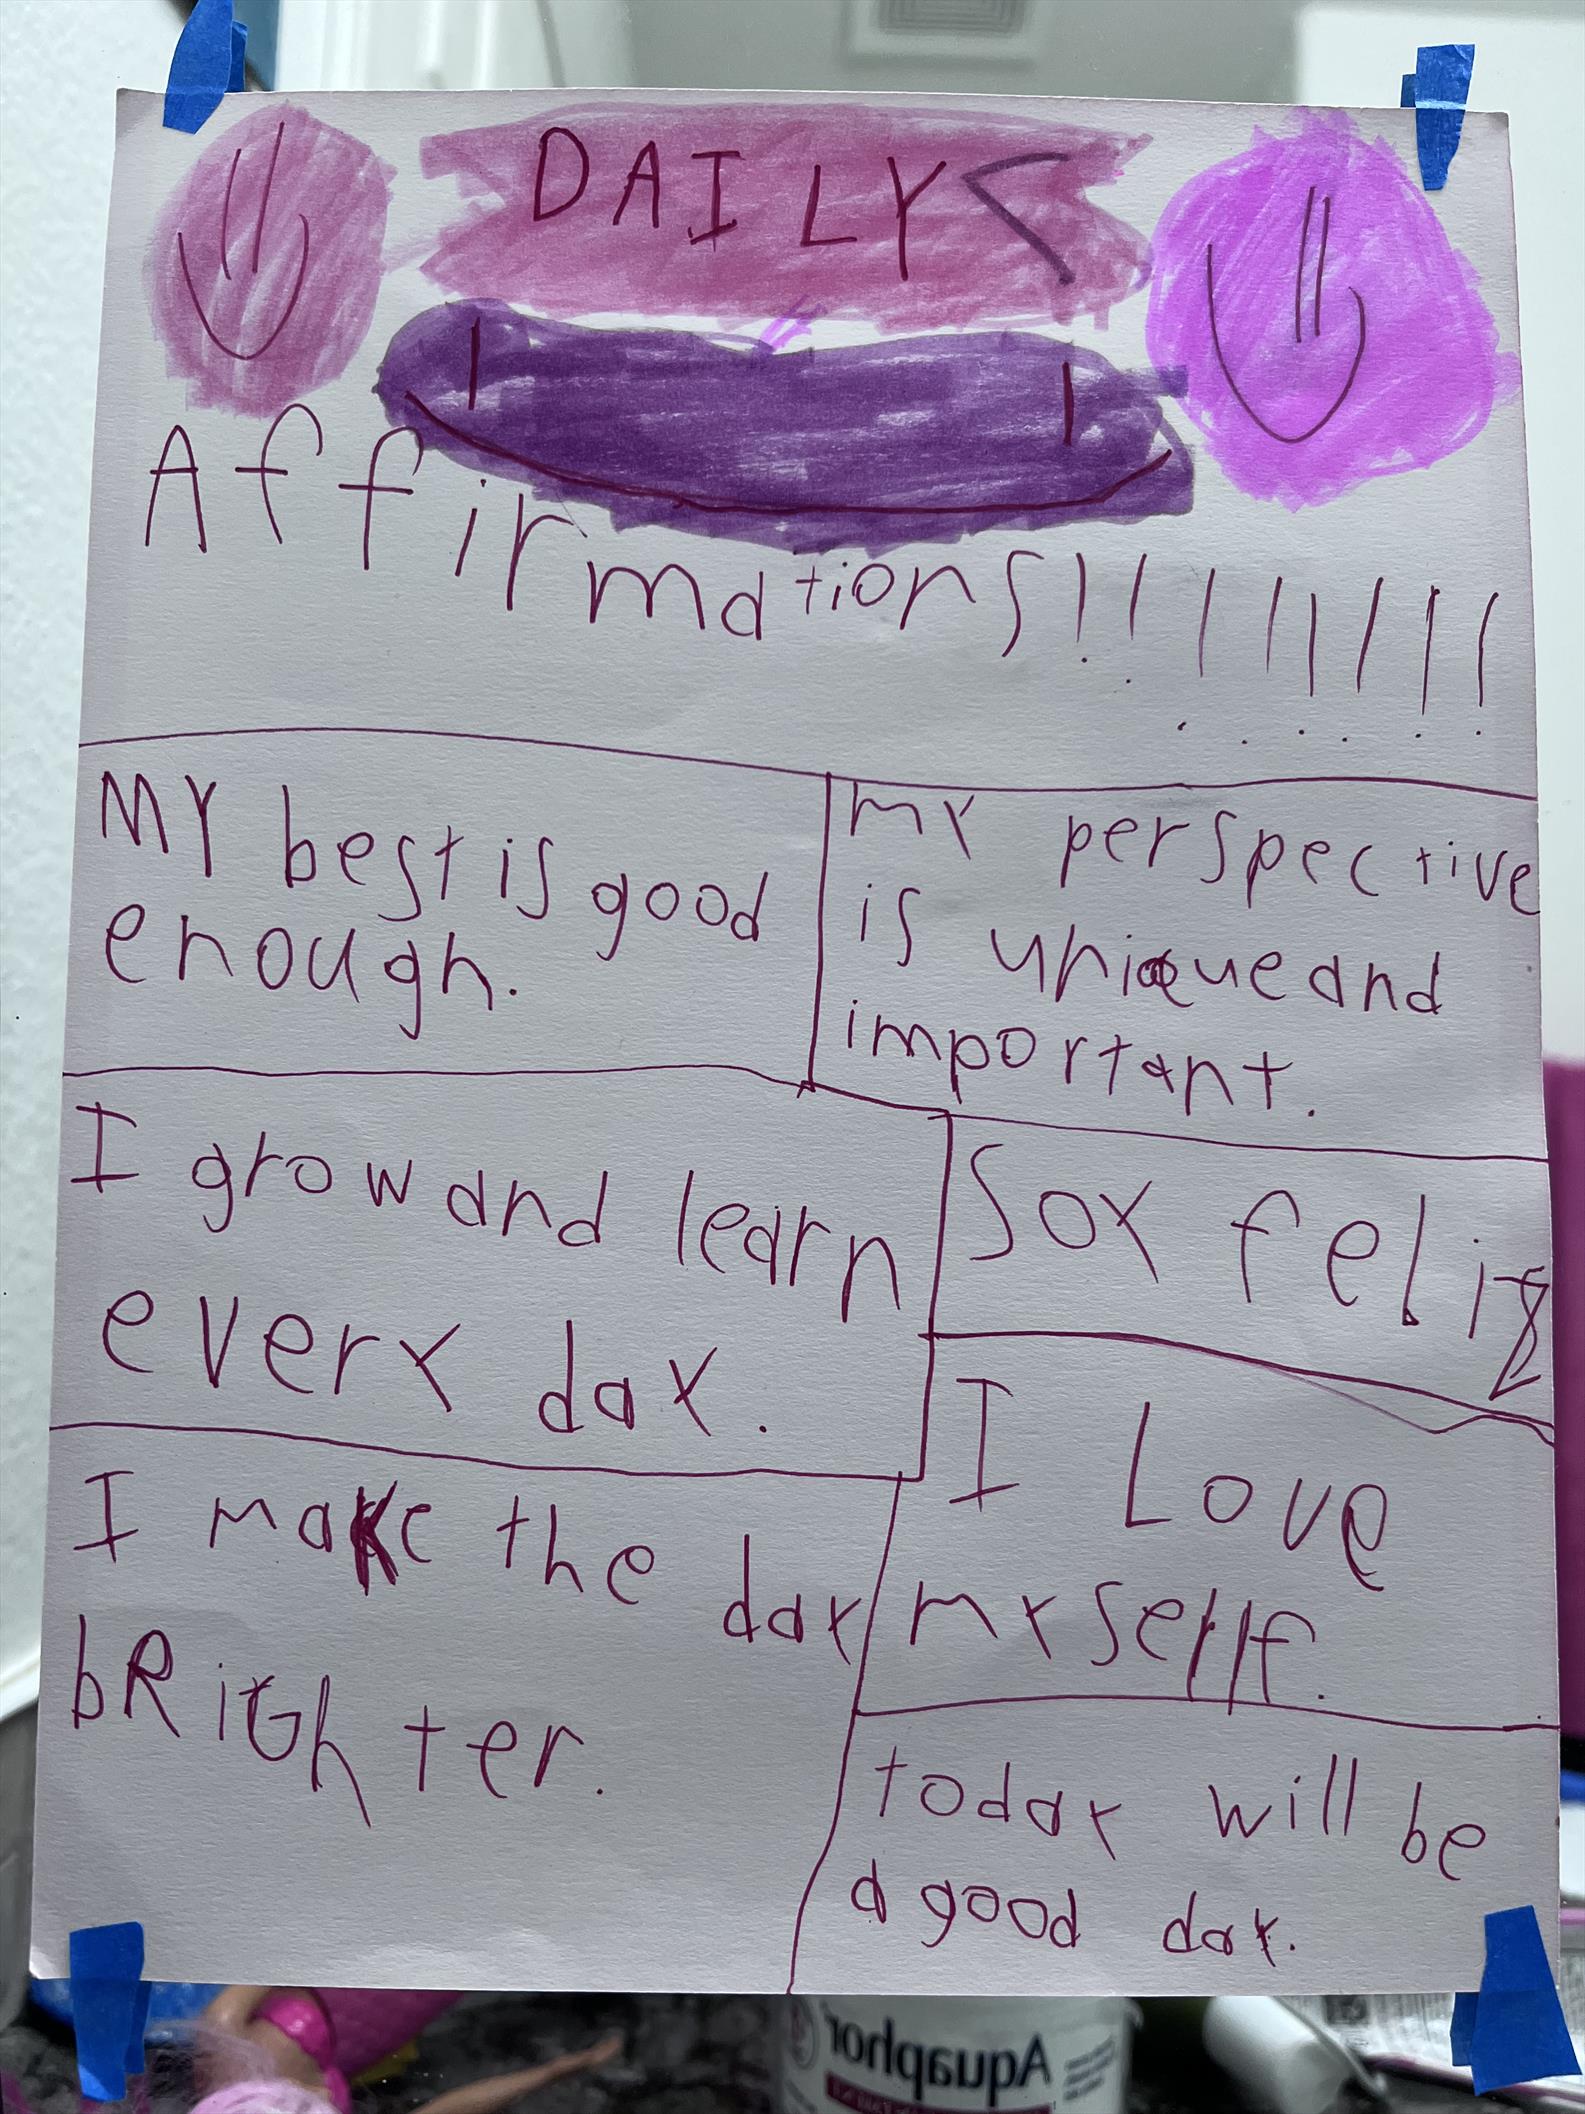 DAILY
Affirmations!!!!!!!!
MY best is good
enough.
my perspective
is unique and
important.
I grow and learn
every day.
Soy feliz
I Love
myself.
I make the day
bRiGhter.
today will be
a good day.
Aquaphor